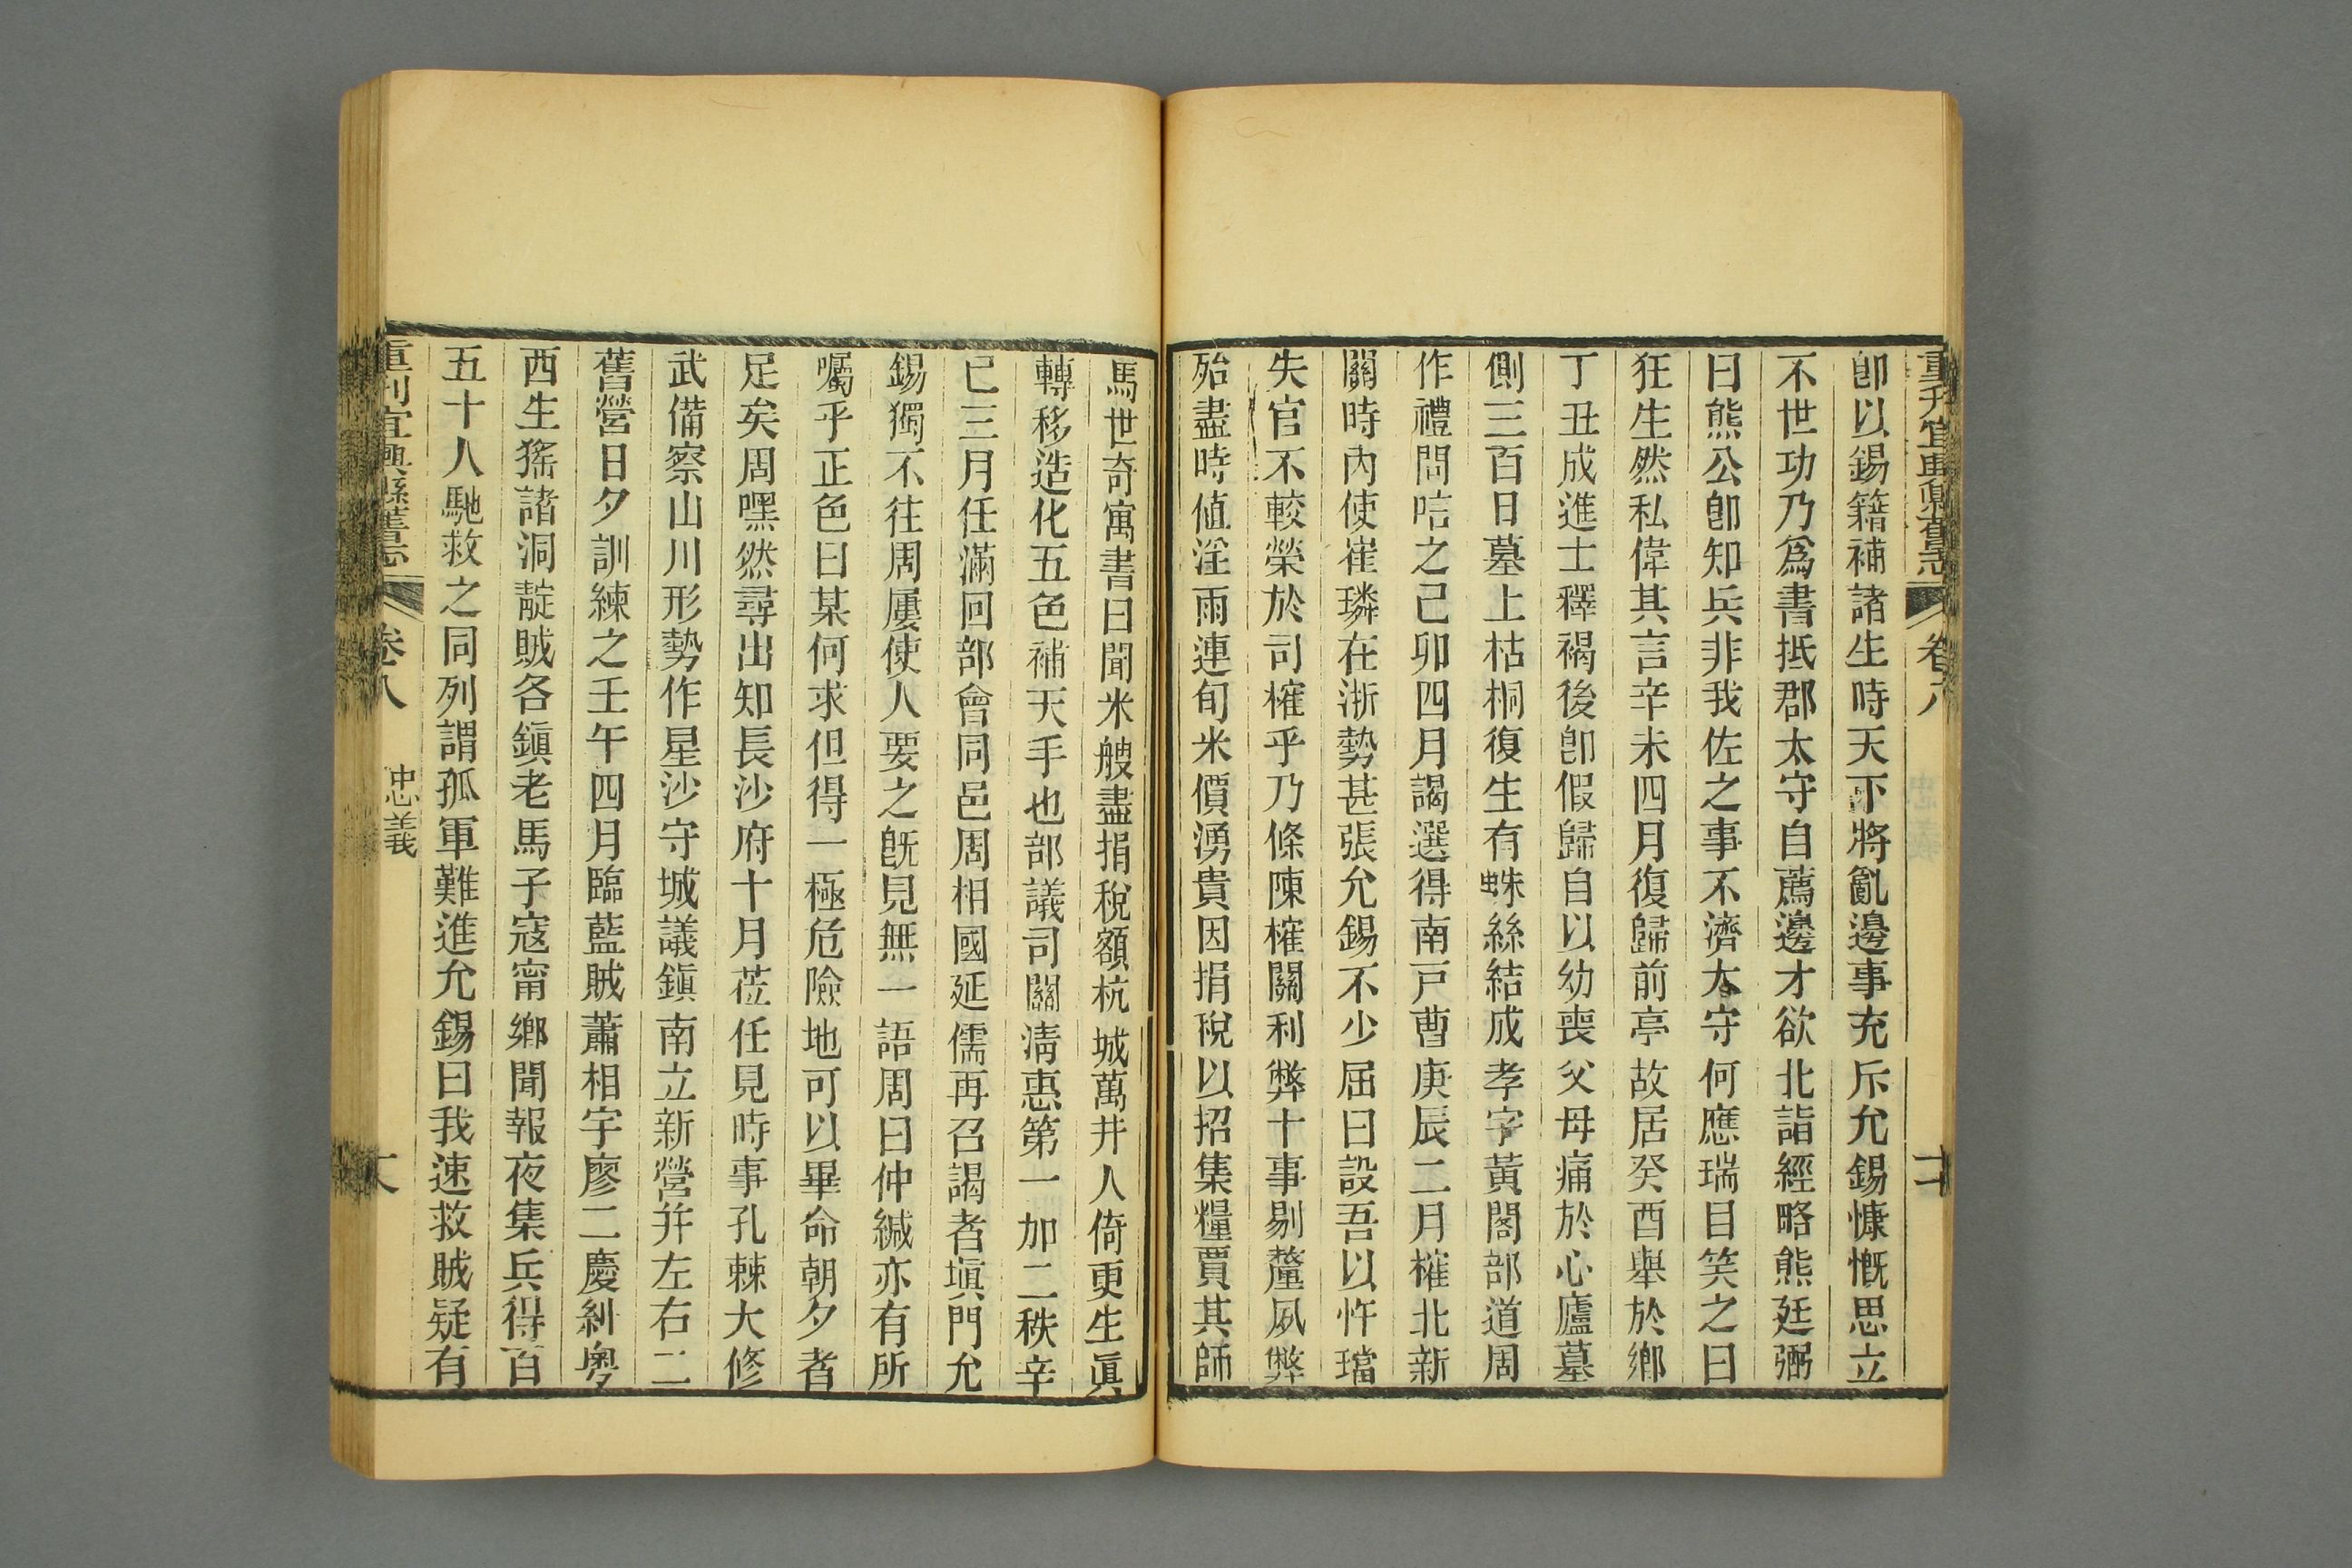 卽以錫籍補諸生時天下將亂邊事充斥允錫慷慨思立
不世功乃爲書抵郡太守自薦邊才欲北詣經略熊廷弼
曰熊公卽知兵非我佐之事不濟太守何應瑞目笑之曰
狂生然私偉其言辛未四月復歸前亭故居癸酉舉於鄉
丁丑成進士釋褐後卽假歸自以幼喪父母痛於心廬墓
側三百日墓上枯桐復生有蛛絲結成孝字黃閣部道周
作禮問唁之己卯四月謁選得南戸曹庚辰二月榷北新
關時內使崔璘在浙勢甚張允錫不少屈曰設吾以忤璫
失官不較榮於司榷乎乃條陳榷關利弊十事剔釐夙弊
殆盡時値淫雨連旬米價湧貴因捐稅以招集糧賈其師
馬世奇寓書曰聞米艘盡捐稅額杭城萬井人倚更生眞
轉移造化五色補天手也部議司關淸惠第一加二秩辛
巳三月任滿回部會同邑周相國延儒再召謁者塡門允
錫獨不往周屢使人要之旣見無一語周曰仲緘亦有所
囑乎正色曰某何求但得一極危險地可以畢命朝夕者
足矣周嘿然尋出知長沙府十月莅任見時事孔棘大修
武備察山川形勢作星沙守城議鎭南立新營幷左右二
舊營日夕訓練之壬午四月臨藍賊蕭相宇廖二慶糾粵
西生猺諸洞靛賊各鎭老馬子寇甯鄉聞報夜集兵得百
五十人馳救之同列謂孤軍難進允錫曰我速救賊疑有
重刊宜興縣舊志
卷八
忠義